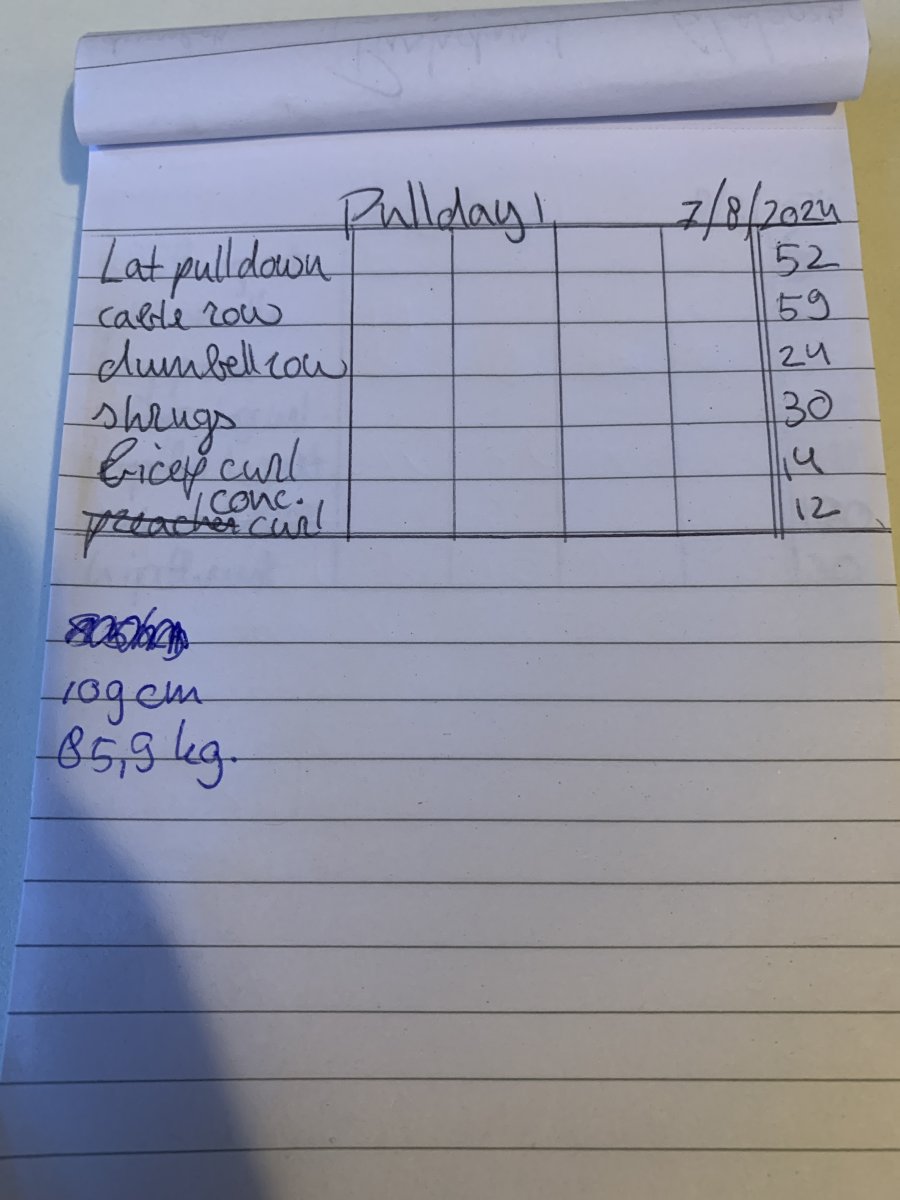 Pullday! 7/8/2024
Lat pulldown 52
cable row 59
dumbell row 24
shrugs 30
bicep curl 14
conc.
preacher curl 12
109 cm
85,9 kg.